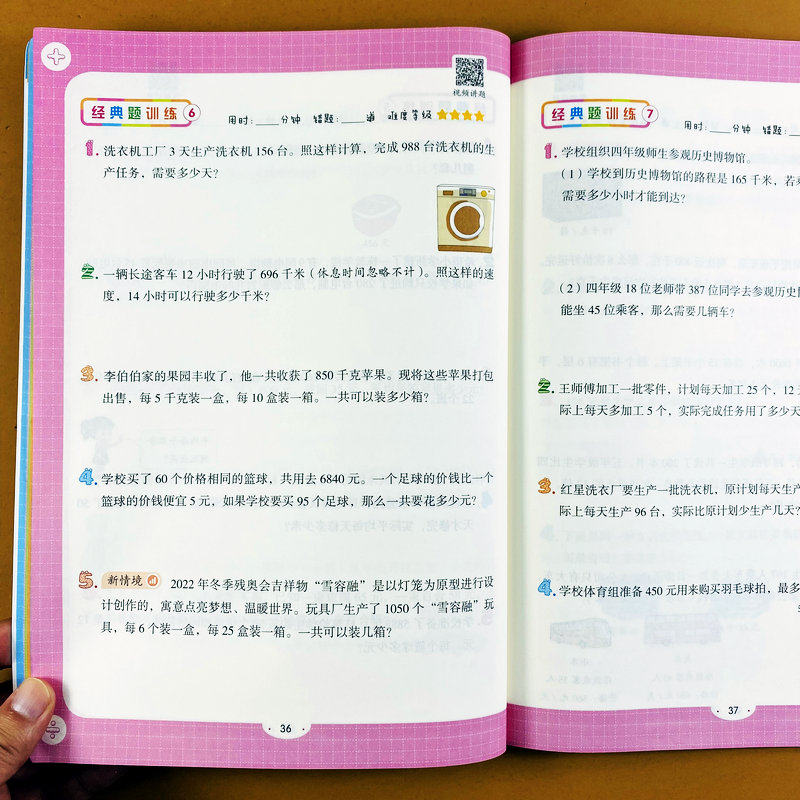 视频讲题
经典题训练 6
用时：____分钟 错题：____道 难度等级
1. 洗衣机工厂 3 天生产洗衣机 156 台。照这样计算，完成 988 台洗衣机的生
产任务，需要多少天？
2. 一辆长途客车 12 小时行驶了 696 千米（休息时间忽略不计）。照这样的速
度，14 小时可以行驶多少千米？
3. 李伯伯家的果园丰收了，他一共收获了 850 千克苹果。现将这些苹果打包
出售，每 5 千克装一盒，每 10 盒装一箱。一共可以装多少箱？
4. 学校买了 60 个价格相同的篮球，共用去 6840 元。一个足球的价钱比一个
篮球的价钱便宜 5 元，如果学校要买 95 个足球，那么一共要花多少元？
5. 新情境 2022 年冬季残奥会吉祥物“雪容融”是以灯笼为原型进行设
计创作的，寓意点亮梦想、温暖世界。玩具厂生产了 1050 个“雪容融”玩
具，每 6 个装一盒，每 25 盒装一箱。一共可以装几箱？
36
经典题训练 7
用时：____分钟 错题：
1. 学校组织四年级师生参观历史博物馆。
（1）学校到历史博物馆的路程是 165 千米，若
需要多少小时才能到达？
（2）四年级 18 位老师带 387 位同学去参观历史
能坐 45 位乘客，那么需要几辆车？
2. 王师傅加工一批零件，计划每天加工 25 个，12
际上每天多加工 5 个，实际完成任务用了多少天
3. 红星洗衣厂要生产一批洗衣机，原计划每天生产
际上每天生产 96 台，实际比原计划少生产几天？
4. 学校体育组准备 450 元用来购买羽毛球拍，最多
37